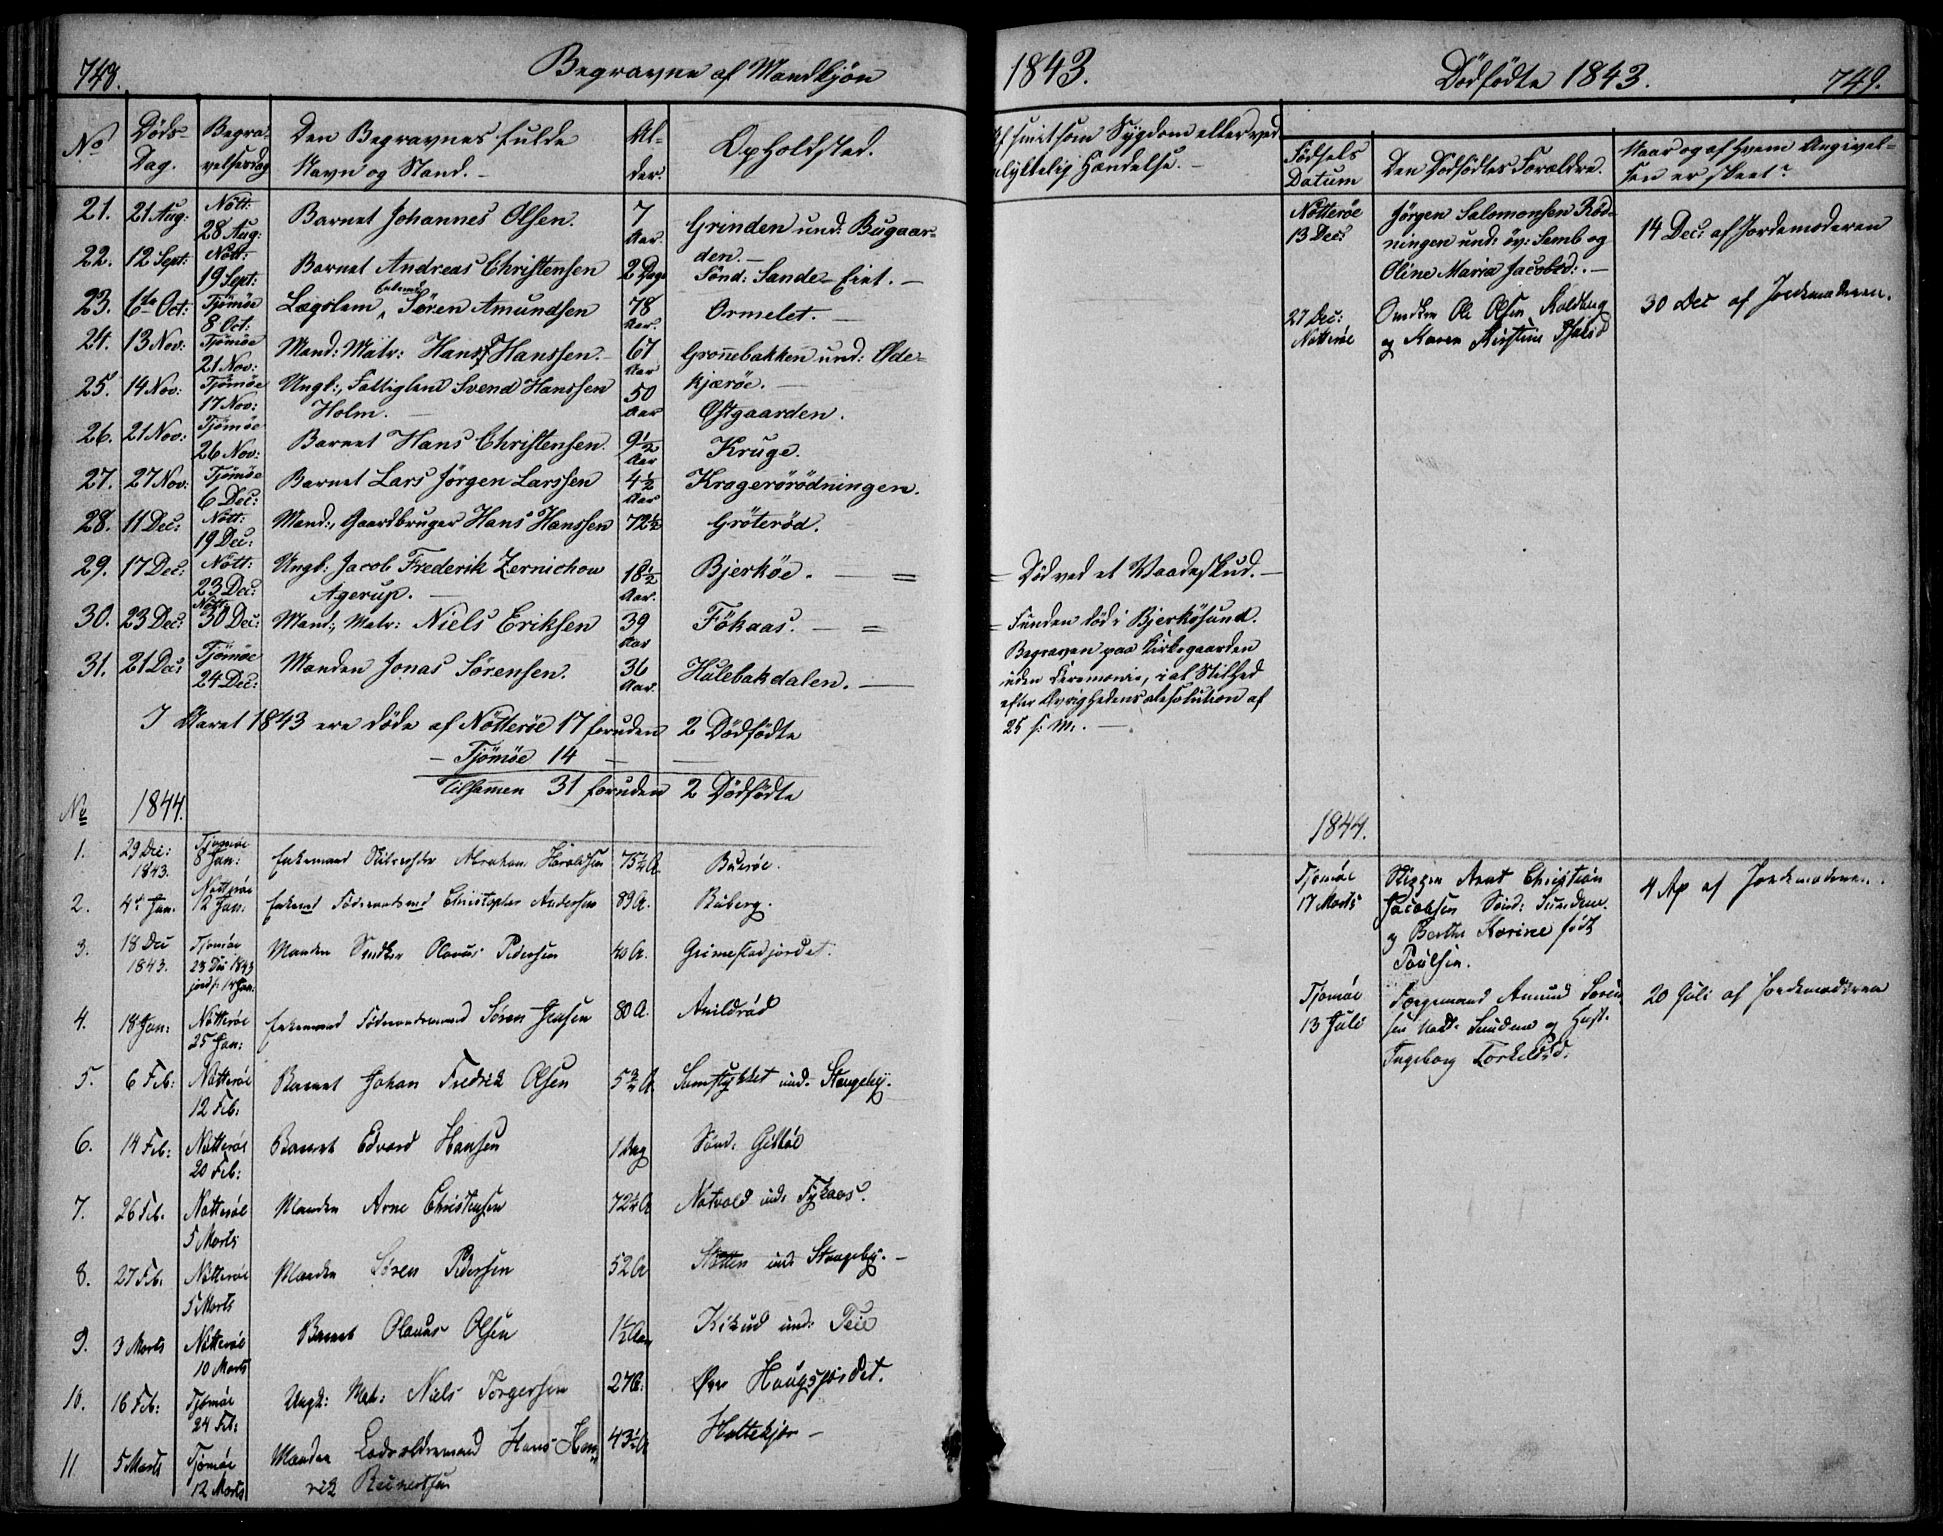 748.
Begravne af Mandkjön
No
Döds-
Dag.
Begra-
velsesdag
Den Begravnes fulde
Navn og Stand. -
Al-
der.
Opholdsted.
21. 21 Aug: Nött: 28 Aug: Barnet Johannes Olsen. 7 Aar. Grinden und: Bugaar-
den. -
22. 12 Sept: Nött: 19 Sept: Barnet Andreas Christensen 2 Dage Sönd: Sande - Eiet. -
23. 6te Oct: Tjömöe 8 Oct: Lægslem Enkem: Sören Amundsen 78 Aar. Ormelet. -
24. 13 Nov: Tjömöe 21 Nov: Mand: Matr: Hans Hanssen. - 67 Aar Gronnebakken und: Öde-
kjæröe. -
25. 14 Nov: Tjömöe 17 Nov: Ungk: Fattiglem Svend Hanssen
Holm. - 50 Aar Østgaarden.
26. 21 Nov: Tjömöe 26 Nov: Barnet Hans Christensen. 9 1/2 Aar Kruge.
27. 27 Nov: Tjömöe 6 Dec: Barnet Lars Jörgen Larssen 4 1/2 Aar Kragerørödningen.
28. 11 Dec: Nött: 19 Dec: Mand: Gaardbruger Hans Hanssen 72 1/2 Gröteröd.
29. 17 Dec: Nött: 23 Dec: Ungk: Jacob Frederik Zernichow
Agerup. - 18 1/2 Aar. Bjerköe. - =
30. 23 Dec: Nött: 30 Dec: Mand: Matr: Niels Eriksen 39 Aar Fökaas. - =
31. 21 Dec: Tjömöe 24 Dec: Manden Jonas Sörensen. 36 Aar. Hulebakdalen. -
I Aaret 1843 ere døde af Nötteröe 17 foruden 2 Dödfödte
- Tjömöe 14 - -
Tilsamen 31 foruden 2 Dödfödte
No 1844.
1. 29 Dec: 1843. Tjömöe 8 Jan: Enkemand Abraham 75 1/2 A.
2. 4de Jan. Nötteröe 12 Jan: Enkemd Föderaadsmd Christopher Andersen 89 A. Buberg.
3. 18 Dec 1843. Tjömöe 23 Dec 1843 Manden Olaves Pedersen 40 A. Grimestadjordet.
4. 18 Jan: Nötteröe 25 Jan: Enkemand Föderaadsmand Sören Jensen 80 A.
5. 6 Feb: Nötteröe 12 Feb: Barnet Johan Fredrik Olsen
6. 14 Feb: Nötteröe 20 Feb: Barnet Edvard Hansen 1 Dag Sönd:
7. 26 Feb. Nötteröe 5 Marts Manden Arne Christensen 72 1/2 A und:
8. 27 Feb. Nötteröe 5 Marts Manden Sören Pedersen 52 A und
9. 3 Marts Nötteröe 10 Marts Barnet Olaves Olsen 1 1/2 Aar und: Teie
10. 16 Feb: Tjömöe 24 Feb: Ungk: Mat: Niels Torgersen 27 A. Haugsjordet.
11 5 Marts Tjömöe 12 Marts Manden Lodsoldermand Hans Hen-
rik 43 1/2 A Holtekjær -
1843.
Dödfödte 1843.
749.
Af smitsom Sygdom eller ved
ulykkelig Hændelse. -
Födsels
Datum
Den Dödfödtes Forældre.
Naar og af Hvem Angivel-
sen er skeet?
Nötteröe
13 Dec:
Jörgen Salomonsen Röd-
ningen und: öv: Semb og
Oline Maria Jacobsd: . -
14 Dec: af Jordemoderen
27 Dec:
Nötteröe
Ole Olsen
og Karen Kirstine
30 Dec af Jordemoderen.
= Död ved et Vaadeskud. -
= Funden död i Bjerkösund.
Begraven paa Kirkegaarden
uden Ceremonie, i al Stilhed
efter Øvrighedens Resolution af
25 s: M. -
1844.
Tjömöe
17 Marts
Skipper Arnt Christian
Jacobsen Sönd: Sundene
og Berthe Karine födt
Poulsen.
4 Ap af Jordemoderen.
Tjömöe
13 Juli
Færgemand Amund Sören-
sen Nord: Sundene og Hust:
Ingeborg Torkeldsd.
20 Juli af Jordemoderen